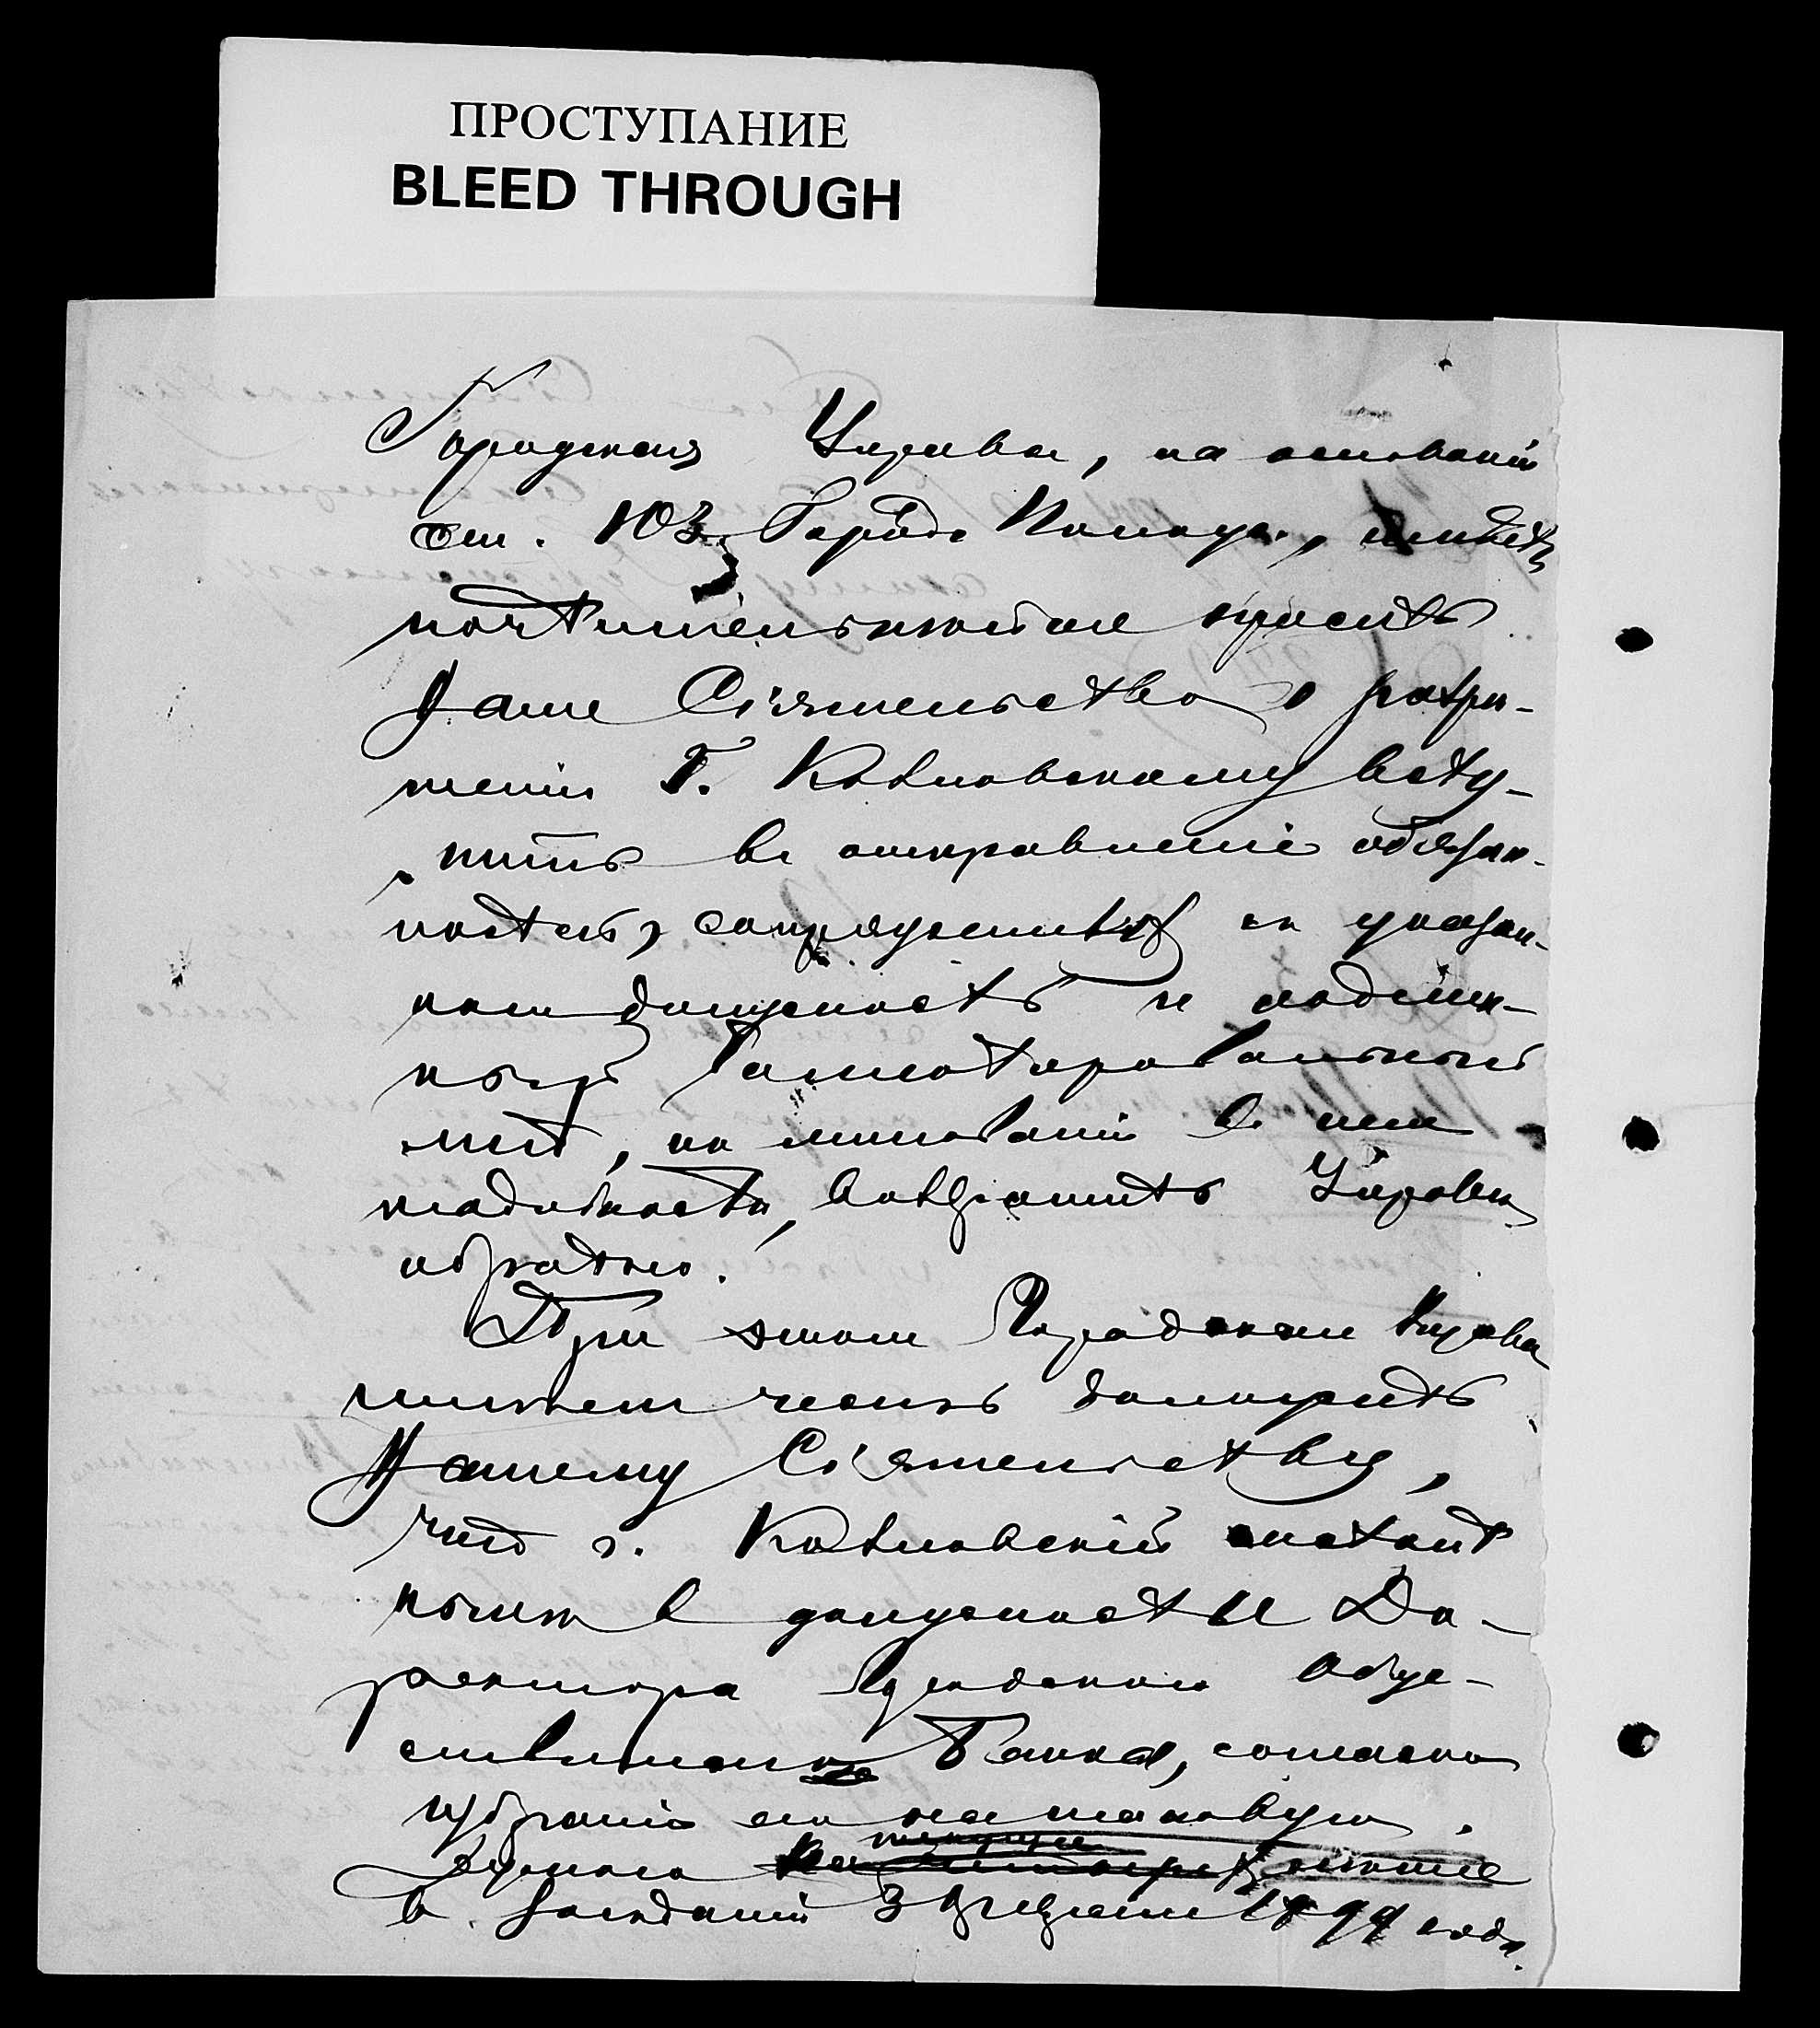 ПРОСТУПАНИЕ
BLEED THROUGH
Городская Управа, на основаніи
ст. 103 Город. Полож., имѣетъ
почтительнѣйше просить
Ваше Сіятельство о разрѣ-
шеніи Г. Котловскому всту-
пить въ отправленіе обязан-
ностей, сопряженныхъ съ указан-
ною должностью и подлин-
ный баллотировальный
листъ, по минованіи въ немъ
надобности, возвратить Управѣ
обратно.
При этомъ Городская Управа
имѣетъ честь доложить
Вашему Сіятельству,
что г. Котловскій состоитъ
нынѣ въ должности Ди-
ректора Городского Обще-
ственнаго Банка, согласно
избранія его на таковую
Думою
въ засѣданіи 3 Февраля 1899 года.